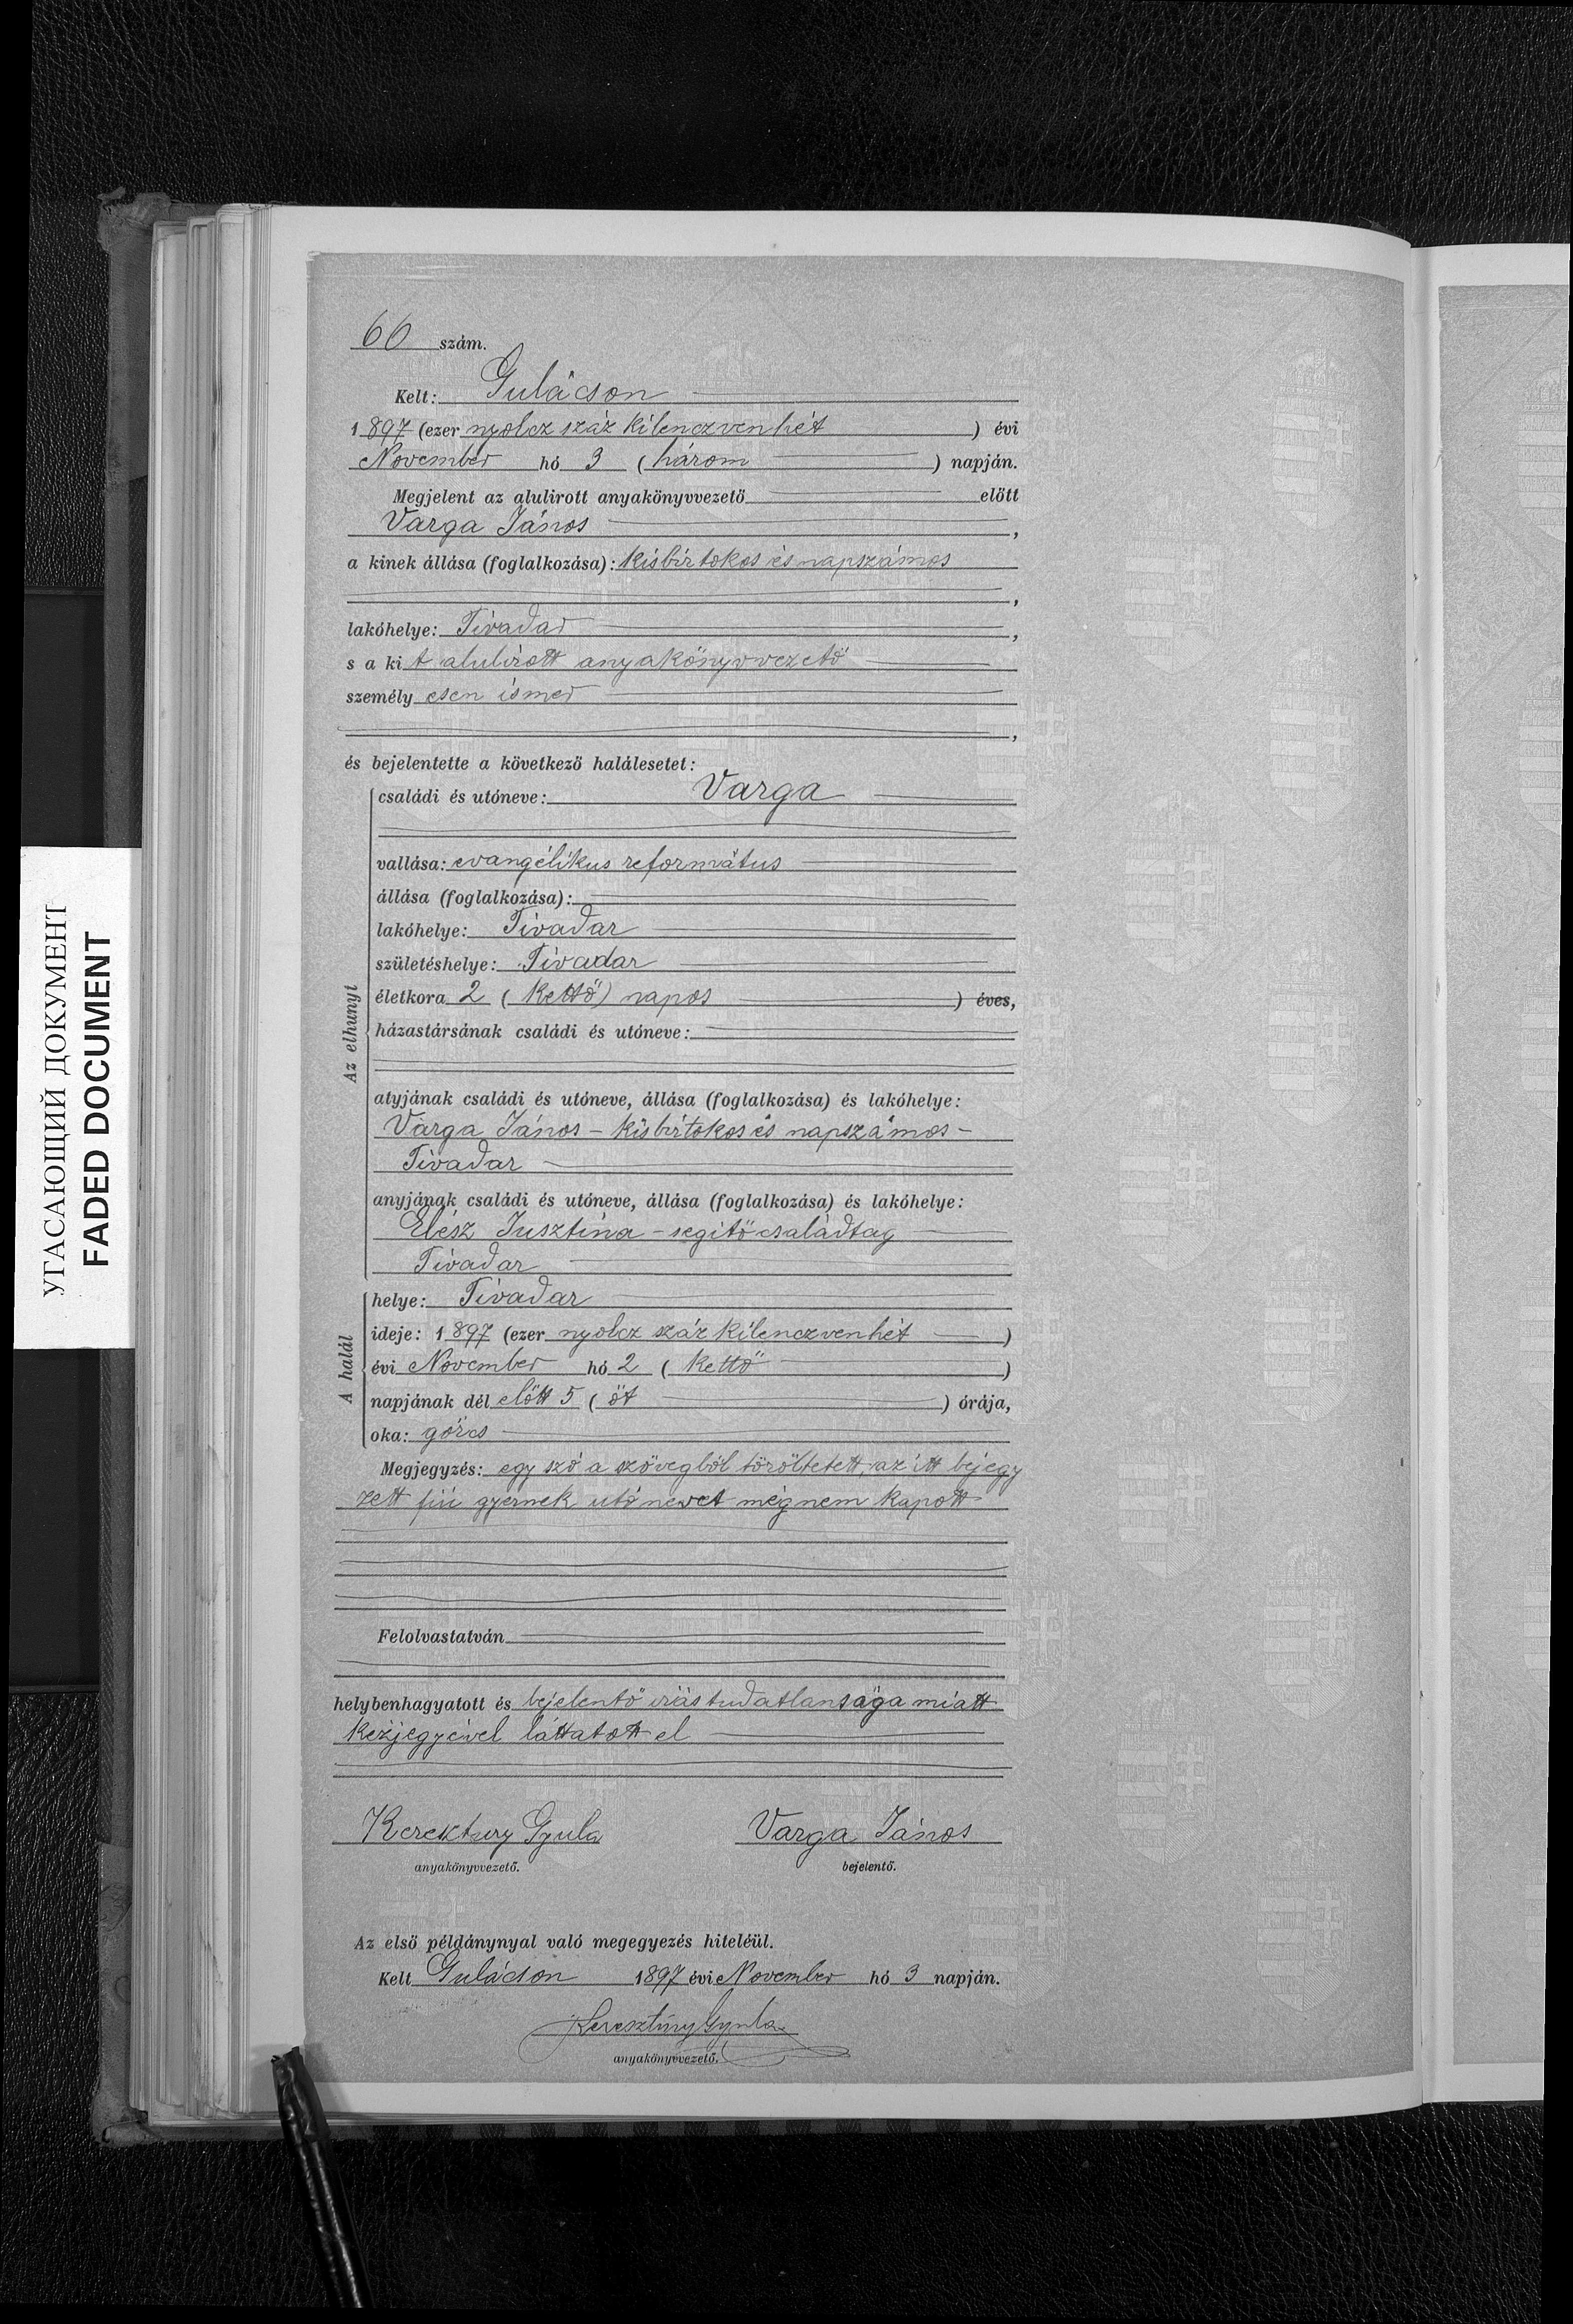 66 szám.
Kelt: Gulácson
1897 (ezer nyolcz száz kilenczvenhét) évi
November hó 3 (három) napján.
Megjelent az alulirott anyakönyvvezető előtt
Varga János,
a kinek állása (foglalkozása): kisbirtokos és napszámos
,
lakóhelye: Tivadar,
s a kit alulirott anyakönyvvezető
személyesen ismer
,
és bejelentette a következő halálesetet:
Az elhunyt
családi és utóneve: Varga
vallása: evangélikus református
állása (foglalkozása):
lakóhelye: Tivadar
születéshelye: Tivadar
életkora 2 (kettő) napos ) éves,
házastársának családi és utóneve:
atyjának családi és utóneve, állása (foglalkozása) és lakóhelye:
Varga János - kisbirtokos és napszámos -
Tivadar
anyjának családi és utóneve, állása (foglalkozása) és lakóhelye:
Elész Jusztina - segitő családtag
Tivadar
A halál
helye: Tivadar
ideje: 1897 (ezer nyolcz száz kilenczvenhét)
évi November hó 2 (kettő)
napjának dél előtt 5 (öt) órája,
oka: görcs
Megjegyzés: egy szó a szövegből töröltetett, az itt bejegy
zett fiú gyermek utónevet még nem kapott
Felolvastatván
helybenhagyatott és bejelentő irás tudatlansága miatt
kézjegyével láttatott el
Kerektury Gyula Varga János
anyakönyvvezető. bejelentő.
Az első példánynyal való megegyezés hiteléül.
Kelt Gulácson 1897 évi November hó 3 napján.
Keresztúry Gyula
anyakönyvvezető.
УГАСАЮЩИЙ ДОКУМЕНТ
FADED DOCUMENT